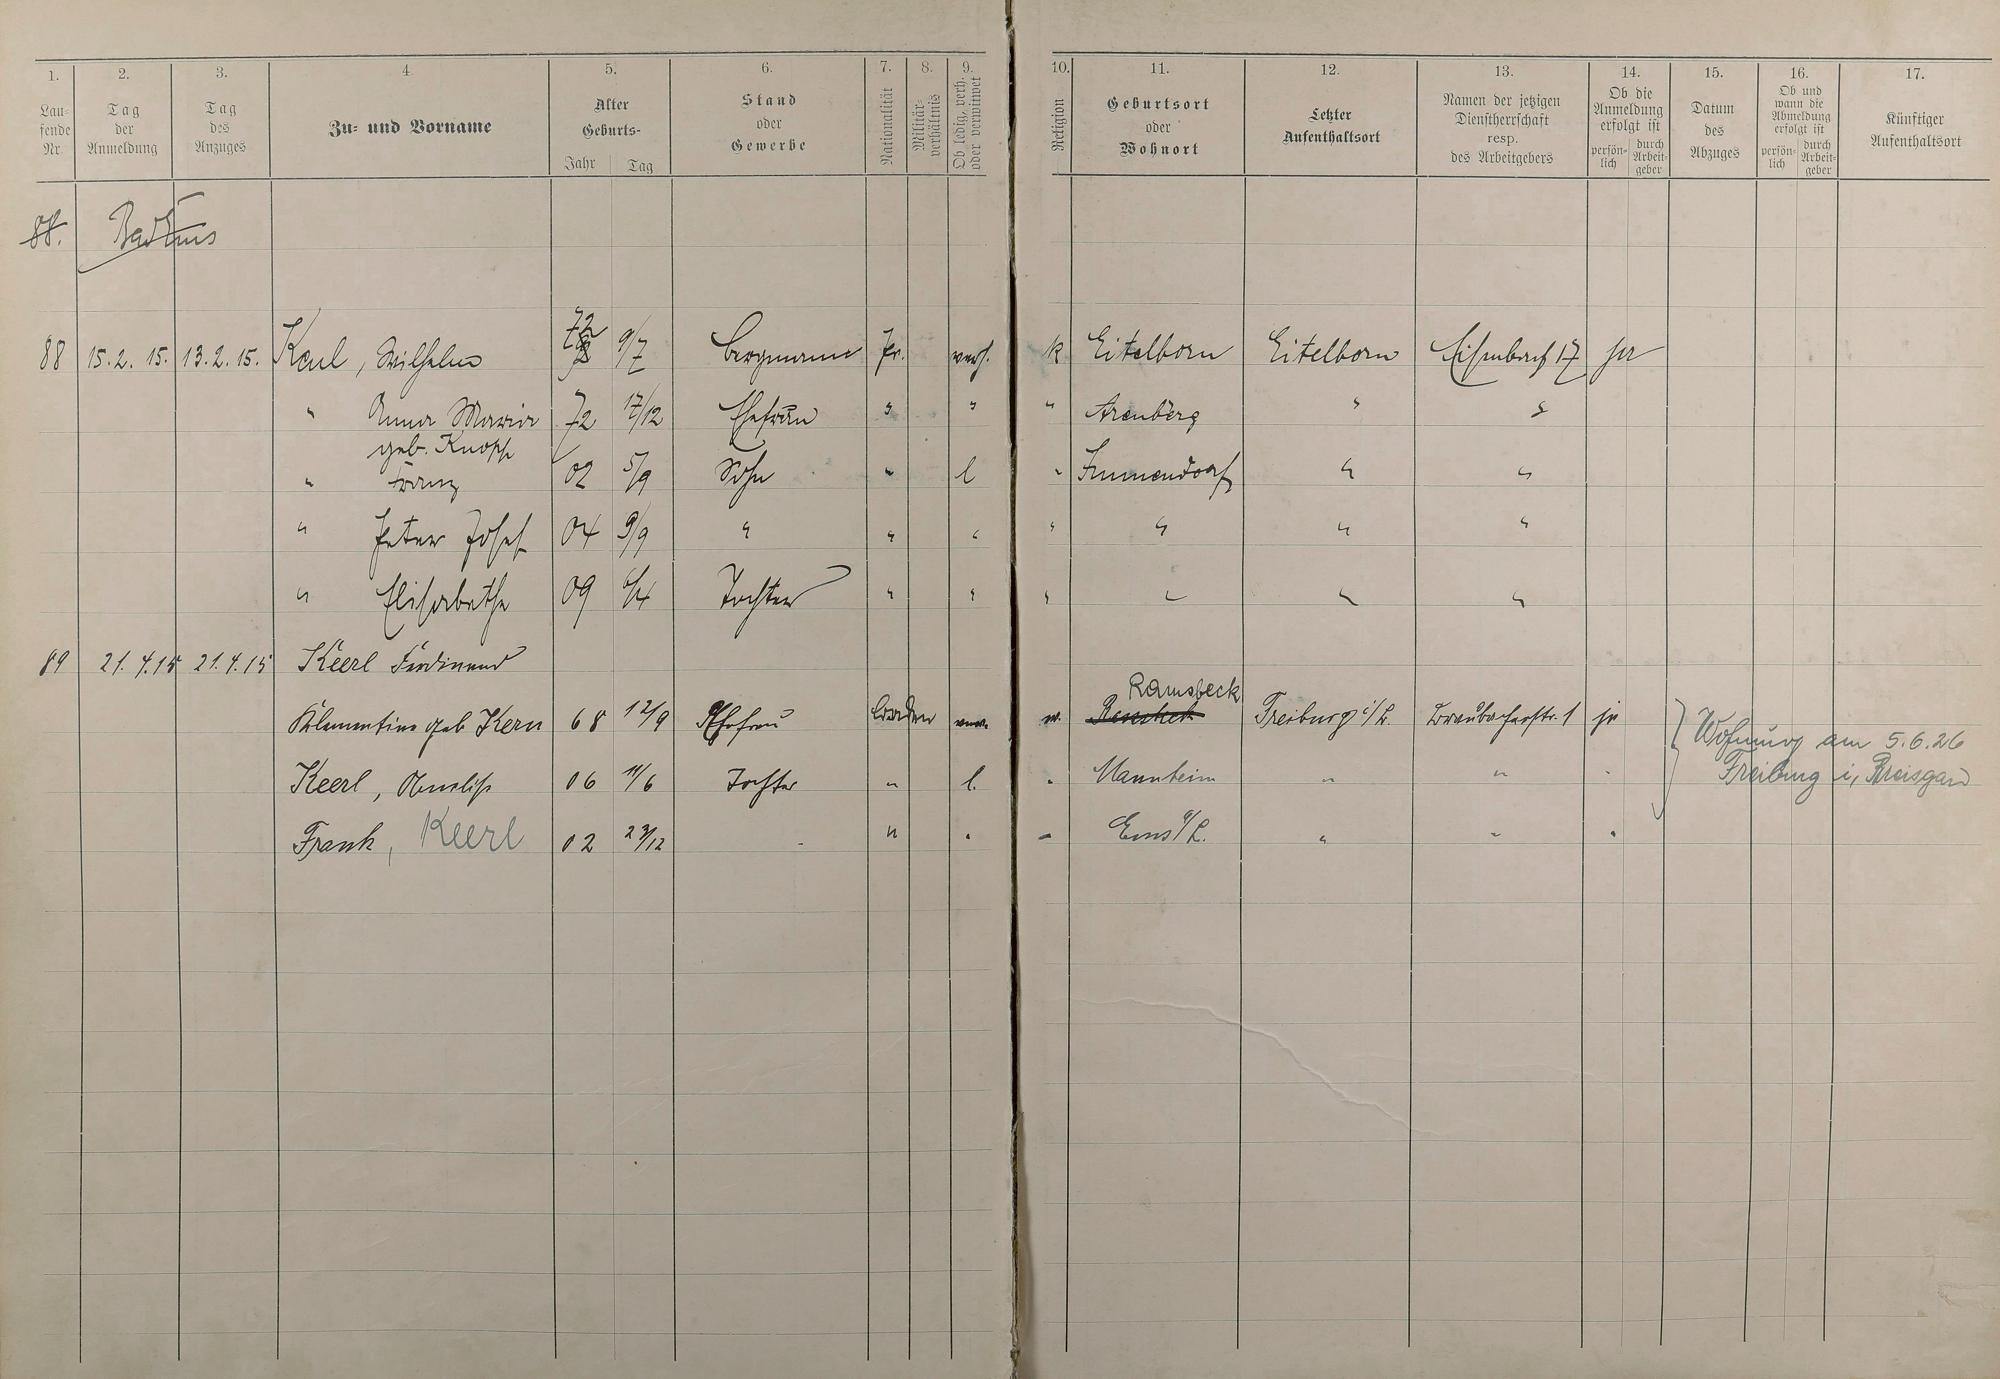 1. 2. 3. 4 5. 6. 7. 8. 9. 10. 11. 12. 13. 14. 15. 16. 17.
Lau-
fende
Nr.
Tag
der
Anmeldung
Tag
des
Anzuges
Zu- und Vorname
Alter
Geburts-
Jahr Tag
Stand
oder
Gewerbe
Nationalität
Militär-
verhältnis
Ob ledig, verh.
oder verwitwet
Religion
Geburtsort
oder
Wohnort
Letzter
Aufenthaltsort
Namen der jetzigen
Dienstherrschaft
resp.
des Arbeitgebers
Ob die
Anmeldung
erfolgt ist
persön-
lich
durch
Arbeit-
geber
Datum
des
Abzuges
Ob und
wann die
Abmeldung
erfolgt ist
persön-
lich
durch
Arbeit-
geber
Künftiger
Aufenthaltsort
88. Bad Ems
88 15.2.15. 13.2.15. Keul, Wilhelm 72 9/7 Bergmann Pr. verh. k Eitelborn Eitelborn Eisenbach 17 ja
" Anna Maria 72 17/12 Ehefrau " " " Arenberg " "
geb. Knopp
" Franz 02 5/9 Sohn " l " Immendorf " "
" Peter Josef 04 9/9 " " " " " " "
" Elisabetha 09 6/4 Tochter " " " " " "
89 21.4.15 21.4.15 Keerl Ferdinand
Ramsbeck
Klementine geb Kern 68 12/9 Ehefrau Baden Freiburg i/B. Braubacherstr. 1 ja
Keerl, 06 11/6 Tochter " l. " Mannheim " " "
Frank, Keerl 02 23/12 - " " " Ems a/L. " " "
Wohnung am 5.6.26
Freiburg i, Breisgau